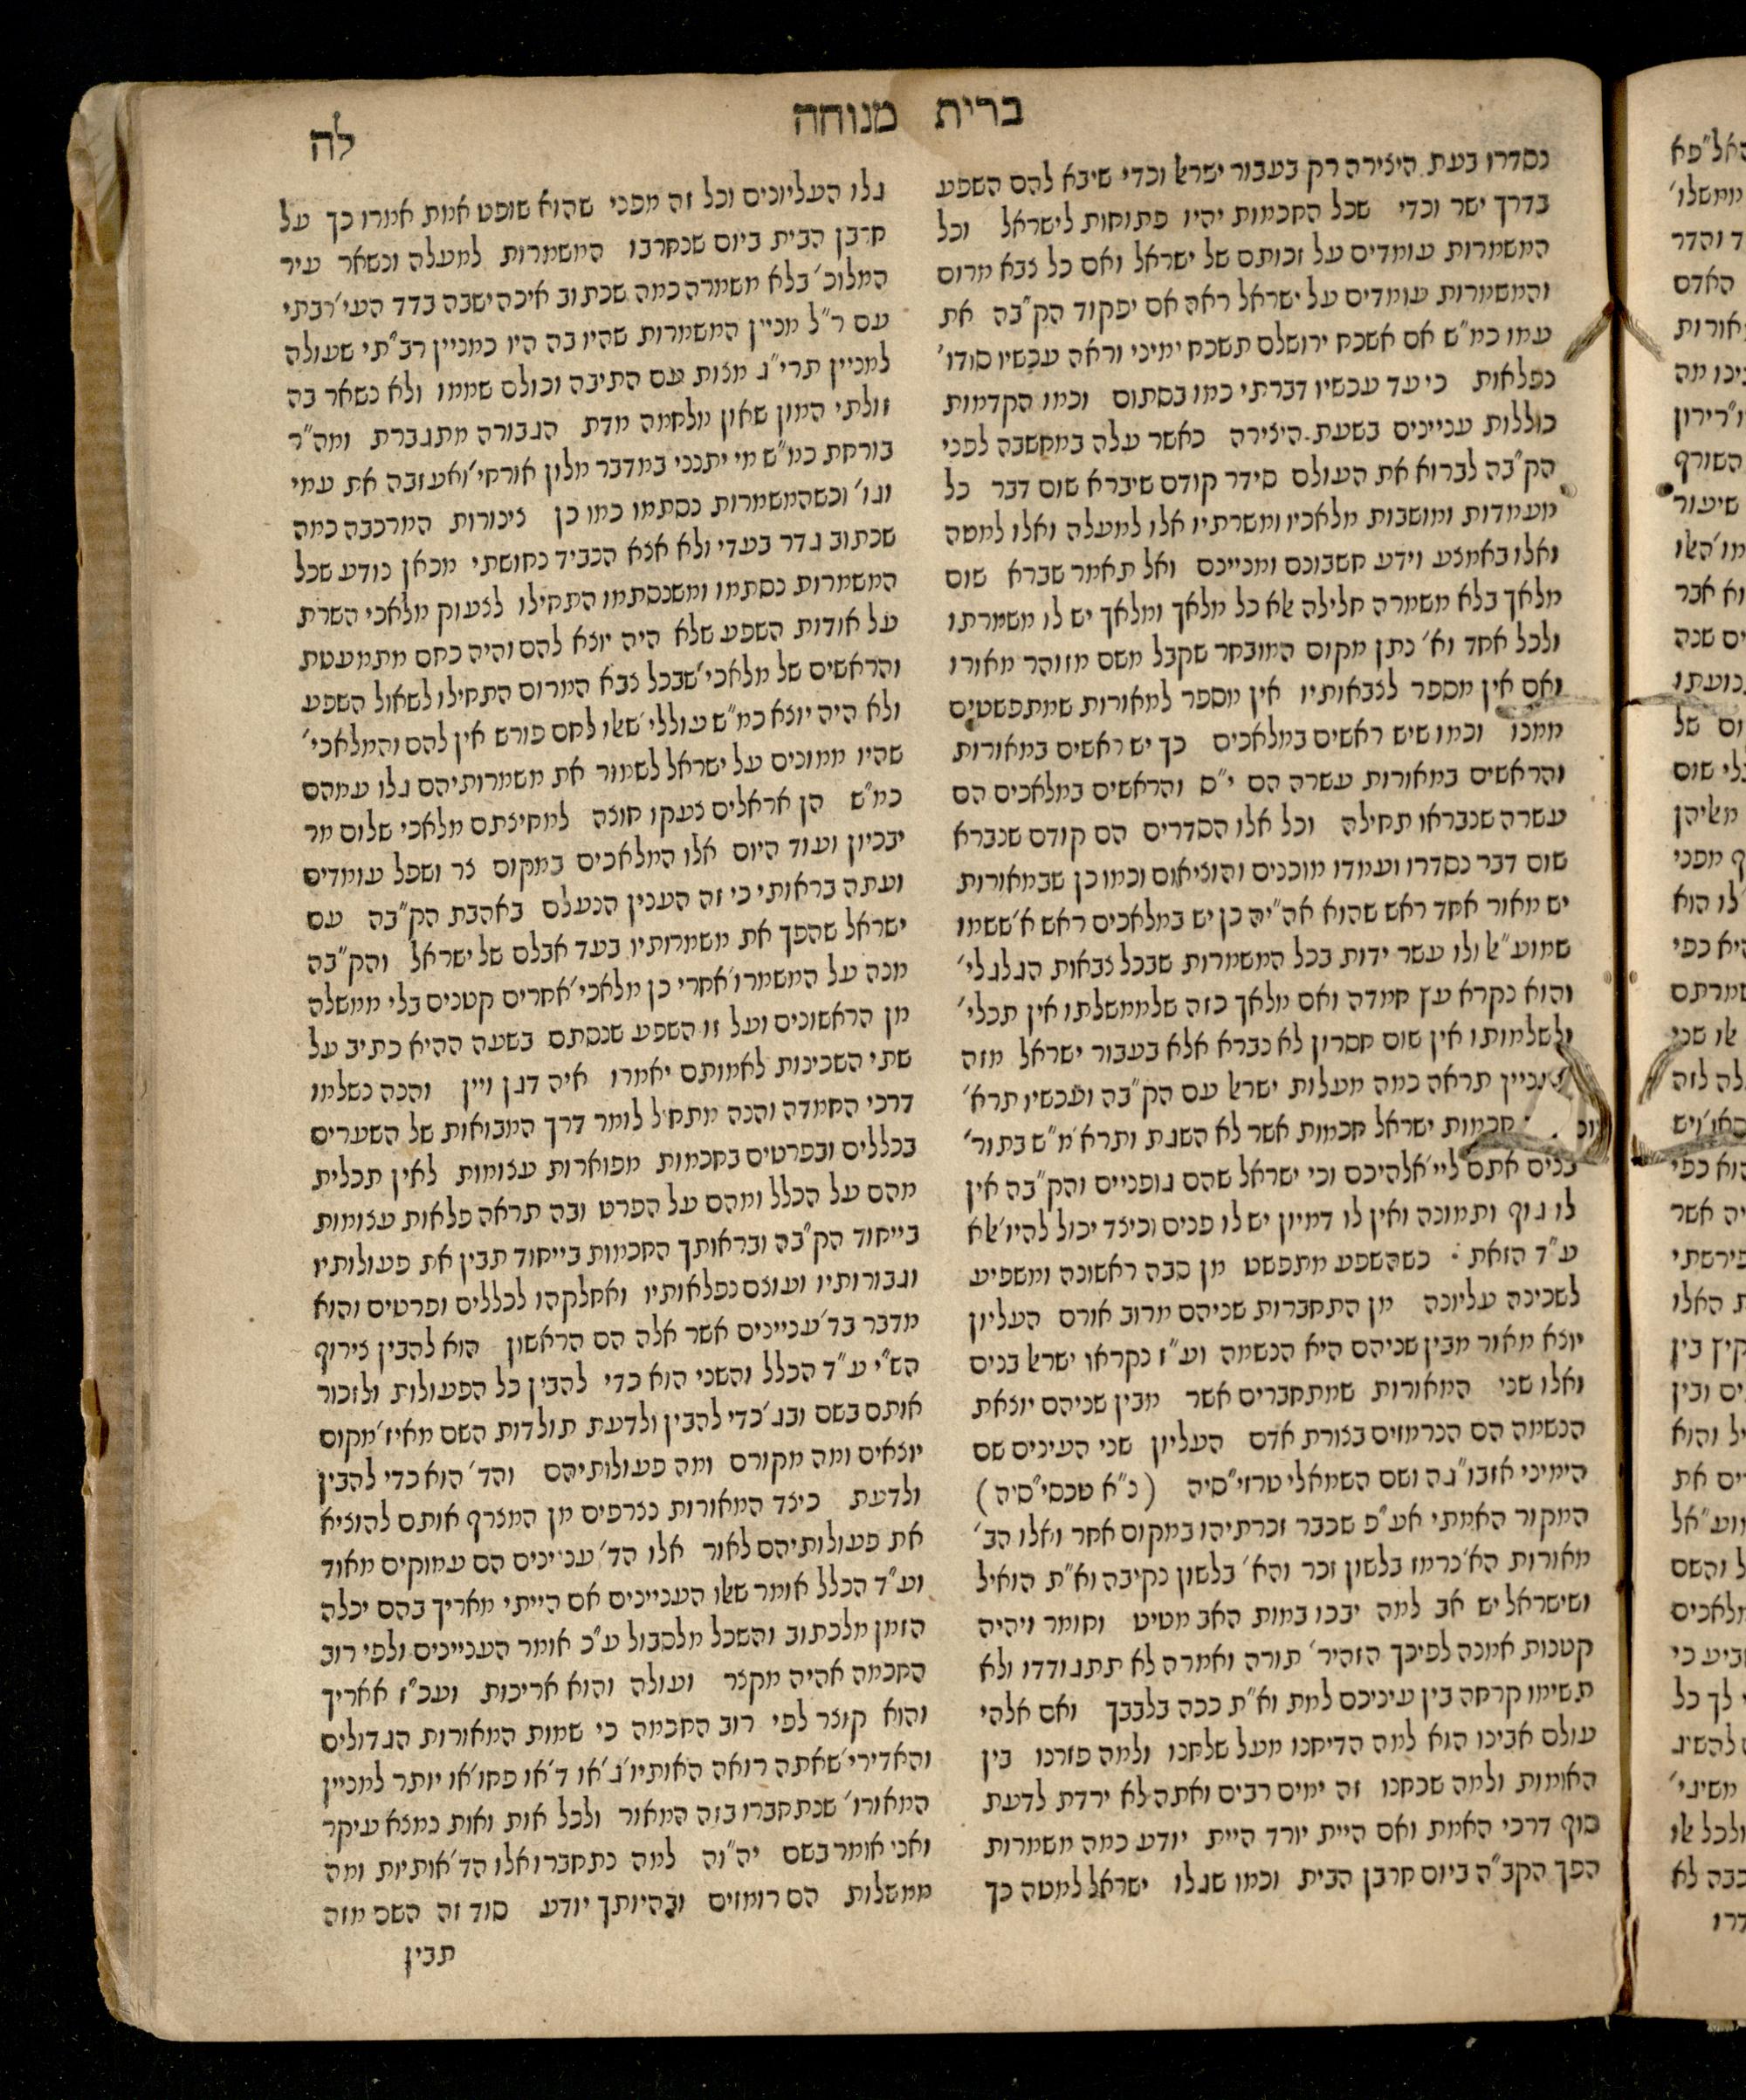 ברית מנוחה
לה
נסדרו בעת היצירה רק בעבור ישראל וכדי שיבא להם השפע
בדרך ישר וכדי שכל החכמות יהיו פתוחות לישראל וכל
המשמרות עומדים על זכותם של ישראל ואם כל צבא מרום
והמשמרות עומדים על ישראל ראה אם יפקוד הק"בה את
עמו כמ"ש אם אשכח ירושלם תשכח ימיני וראה עכשיו סודו'
נפלאות כי עד עכשיו דברתי כמו בסתום וכמו הקדמות
כוללות עניינים בשעת היצירה כאשר עלה במחשבה לפני
הק"בה לברוא את העולם סידר קודם שיברא שום דבר כל
מעמדות ומושבות מלאכיו ומשרתיו אלו למעלה ואלו למטה
ואלו באמצע וידע חשבונם ומניינם ואל תאמר שברא שום
מלאך בלא משמרה חלילה אלא כל מלאך ומלאך יש לו משמרתו
ולכל אחד וא' נתן מקום המובחר שקבל משם מזוהר מאורו
ואם אין מספר לצבאותיו אין מספר למאורות שמתפשטים
ממנו וכמו שיש ראשים במלאכים כך יש ראשים במאורות
והראשים במאורות עשרה הם י"ס והראשים במלאכים הם
עשרה שנבראו תחילה וכל אלו הסדרים הם קודם שנברא
שום דבר נסדרו ועמדו מוכנים והוציאום וכמו כן שבמאורות
יש מאור אחד ראש שהוא אה"יה כן יש במלאכים ראש א' ששמו
שמוע"אל ולו עשר ידות בכל המשמרות שבכל צבאות הגלגלי'
והוא נקרא עץ חמדה ואם מלאך כזה שלממשלתו אין תכלי'
ולשלמותו אין שום חסרון לא נברא אלא בעבור ישראל מזה
עניין תראה כמה מעלות ישראל עם הק"בה ועכשיו תרא'
חכמות ישראל חכמות אשר לא השגת ותרא' מ"ש בתור'
בנים אתם ליי' אלהיכם וכי ישראל שהם גופניים והק"בה אין
לו גוף ותמונה ואין לו דמיון יש לו פנים וכיצד יכול להיו' אלא
ע"ד הזאת כשהשפע מתפשט מן סבה ראשונה ומשפיע
לשכינה עליונה מן התחברות שניהם מרוב אורם העליון
יוצא מאור מבין שניהם היא הנשמה וע"ז נקראו ישראל בנים
ואלו שני המאורות שמתחברים אשר מבין שניהם יוצאת
הנשמה הם הנרמזים בצורת אדם העליון שני העינים שם
הימיני אזבו"גה ושם השמאלי טרזי"סיה (נ"א טכסי"סיה)
המקור האמתי אע"פ שכבר זכרתיהו במקום אחר ואלו הב'
מאורות הא' נרמז בלשון זכר והא' בלשון נקיבה וא"ת הואיל
ושישראל יש אב למה יבכו במות האב מטיט וחומר ויהיה
קטנות אמנה לפיכך הזהיר' תורה ואמרה לא תתגודדו ולא
תשימו קרחה בין עיניכם למת וא"ת ככה בלבבך ואם אלהי
עולם אבינו הוא למה הדיחנו מעל שלחנו ולמה פזרנו בין
האומות ולמה שכחנו זה ימים רבים ואתה לא ירדת לדעת
סוף דרכי האמת ואם היית יורד היית יודע כמה משמרות
הפך הקב"ה ביום חרבן הבית וכמו שגלו ישראל למטה כך
גלו העליונים וכל זה מפני שהוא שופט אמת אמרו כך על
חרבן הבית ביום שנחרבו המשמרות למעלה ונשאר עיר
המלוכ' בלא משמרה כמה שכתוב איכה ישבה בדד העי' רבתי
עם ר"ל מניין המשמרות שהיו בה היו כמניין רב"תי שעולה
למניין תרי"ג מצות עם התיבה וכולם שממו ולא נשאר בה
זולתי המון שאון מלחמה מדת הגבורה מתגברת ומה"ר
בורחת כמ"ש מי יתנני במדבר מלון אורחי' ואעזבה את עמי
וגו' וכשהמשמרות נסתמו כמו כן צינורות המרכבה כמה
שכתוב גדר בעדי ולא אצא הכביד נחושתי מכאן נודע שכל
המשמרות נסתמו ומשנסתמו התחילו לצעוק מלאכי השרת
על אודות השפע שלא היה יוצא להם והיה כחם מתמעטת
והראשים של מלאכי' שבכל צבא המרום התחילו לשאול השפע
ולא היה יוצא כמ"ש עוללי' שאלו לחם פורש אין להם והמלאכי'
שהיו ממונים על ישראל לשמור את משמרותיהם גלו עמהם
כמ"ש הן אראלים צעקו חוצה למחיצתם מלאכי שלום מר
יבכיון ועוד היום אלו המלאכים במקום צר ושפל עומדים
ועתה בראותי כי זה הענין הנעלם באהבת הק"בה עם
ישראל שהפך את משמרותיו בעד אבלם של ישראל והק"בה
מנה על המשמרו' אחרי כן מלאכי' אחרים קטנים בלי ממשלה
מן הראשונים ועל זו השפע שנסתם בשעה ההיא כתיב על
שתי השכינות לאמותם יאמרו איה דגן ויין והנה נשלמו
דרכי החמדה והנה מתחיל לומר דרך המבואות של השערים
בכללים ובפרטים בחכמות מפוארות עצומות לאין תכלית
מהם על הכלל ומהם על הפרט ובה תראה פלאות עצומות
בייחוד הק"בה ובראותך החכמות בייחוד תבין את פעולותיו
וגבורותיו ועוצם נפלאותיו ואחלקהו לכללים ופרטים והוא
מדבר בד' עניינים אשר אלה הם הראשון הוא להבין צירוף
הש"י ע"ד הכלל והשני הוא כדי להבין כל הפעולות ולזכור
אותם בשם ובג' כדי להבין ולדעת תולדות השם מאיז' מקום
יוצאים ומה מקורם ומה פעולותיהם והד' הוא כדי להבין
ולדעת כיצד המאורות נצרפים מן המצרף אותם להוציא
את פעולותיהם לאור אלו הד' עניינים הם עמוקים מאוד
וע"ד הכלל אומר שאלו העניינים אם הייתי מאריך בהם יכלה
הזמן מלכתוב והשכל מלסבול ע"כ אומר העניינים ולפי רוב
החכמה אהיה מקצר ועולה והוא אריכות ועכ"ז אאריך
והוא קוצר לפי רוב החכמה כי שמות המאורות הגדולים
והאדירי' שאתה רואה האותיו' ג' או ד' או פחו' או יותר למניין
המאורו' שנתחברו בזה המאור ולכל אות ואות נמצא עיקר
ואני אומר בשם יה"וה למה נתחברו אלו הד' אותיות ומה
ממשלות הם רומזים ובהיותך יודע סוד זה השם מזה
תבין